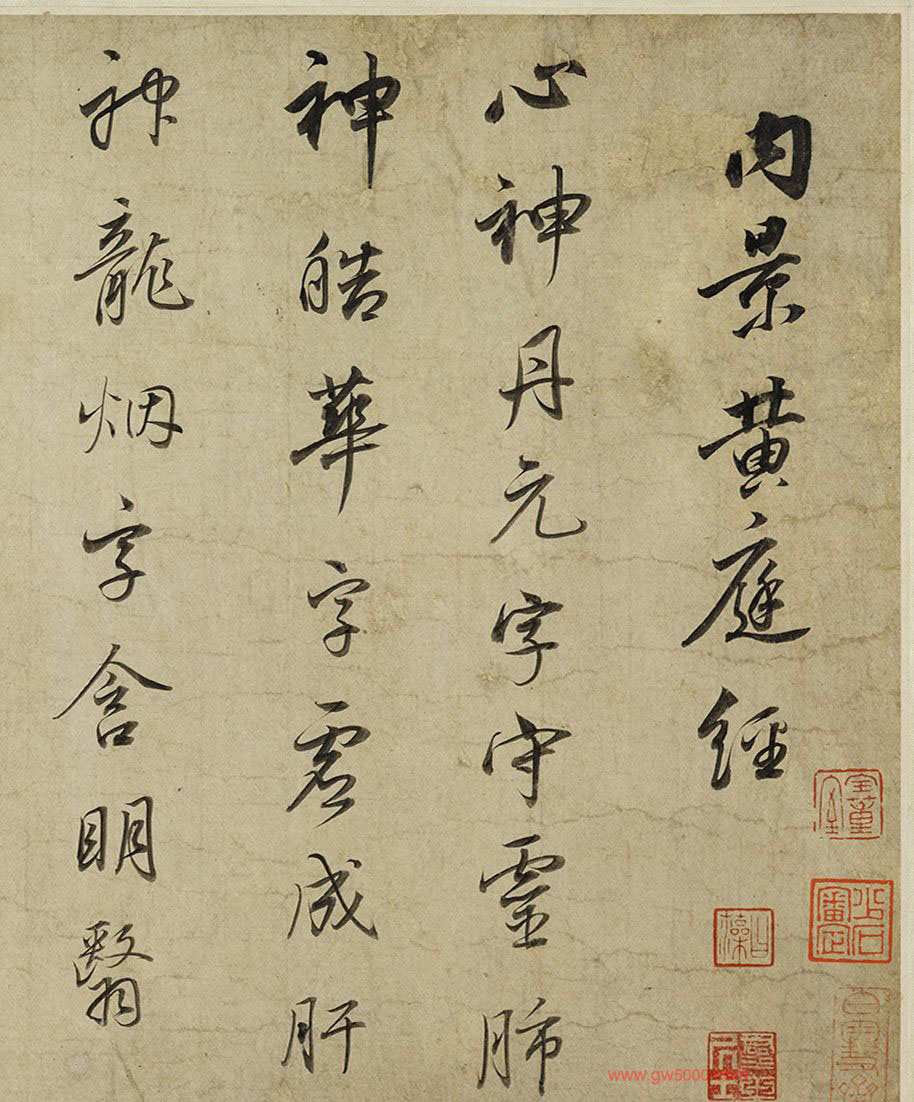 内景黄庭经
心神丹元字守靈肺
神皓華字虚成肝
神龍烟字含明翳
www.gw500